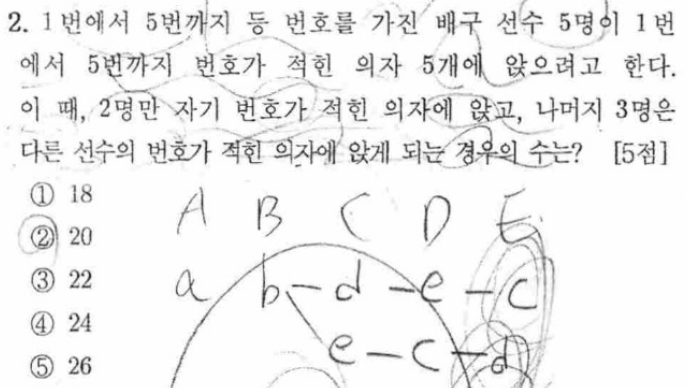 2. 1번에서 5번까지 등 번호를 가진 배구 선수 5명이 1번
에서 5번까지 번호가 적힌 의자 5개에 앉으려고 한다.
이 때, 2명만 자기 번호가 적힌 의자에 앉고, 나머지 3명은
다른 선수의 번호가 적힌 의자에 앉게 되는 경우의 수는? [5점]
① 18
② 20
③ 22
④ 24
⑤ 26
A B C D E
a b - d - e - c
e - c - d